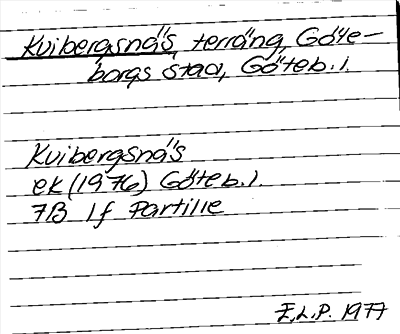 Kvibergsnäs, terräng, Göte-
borgs stad, Göteb. l.
Kvibergsnäs
ek (1976) Göteb. l.
7B 1f Partille
E.L.P. 1977